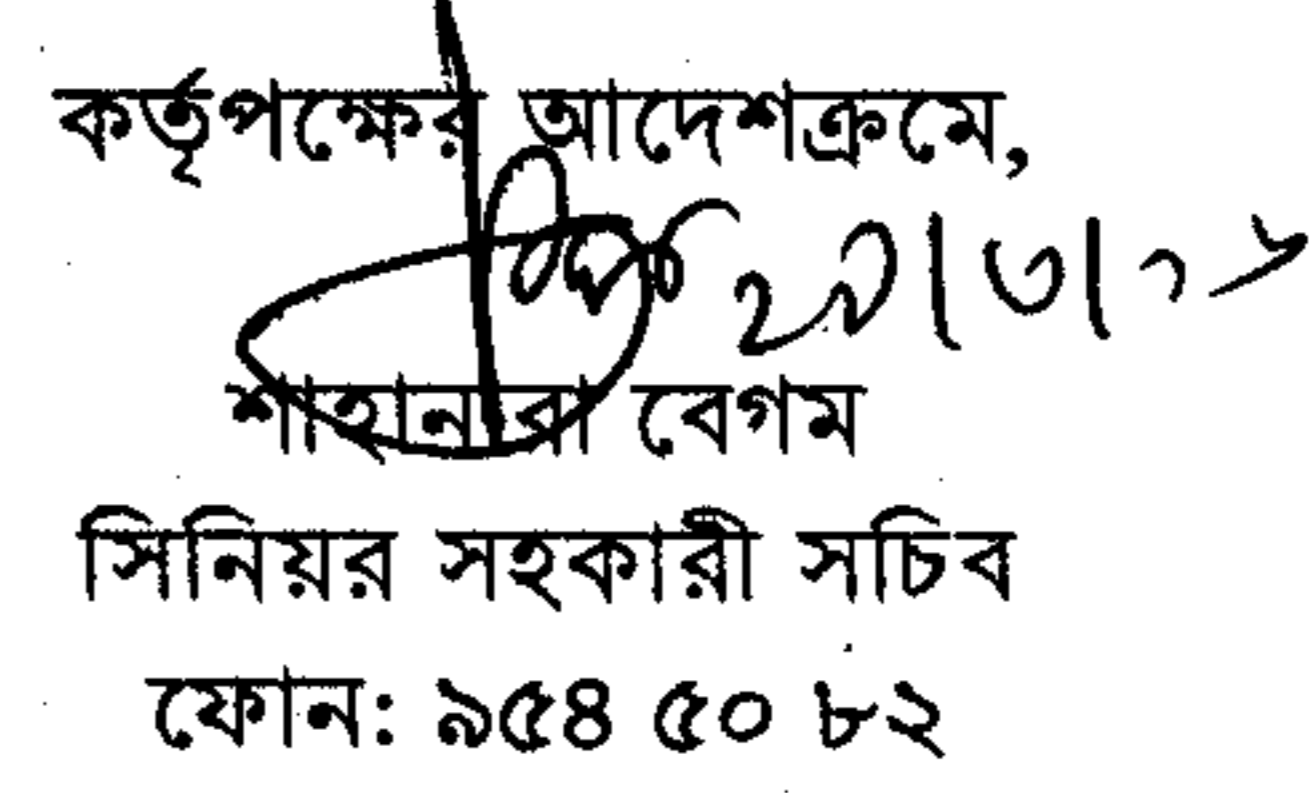 কর্তৃপক্ষের আদেশক্রমে,
শাহানারা বেগম
সিনিয়র সহকারী সচিব
ফোন: ৯৫৪ ৫০ ৮২